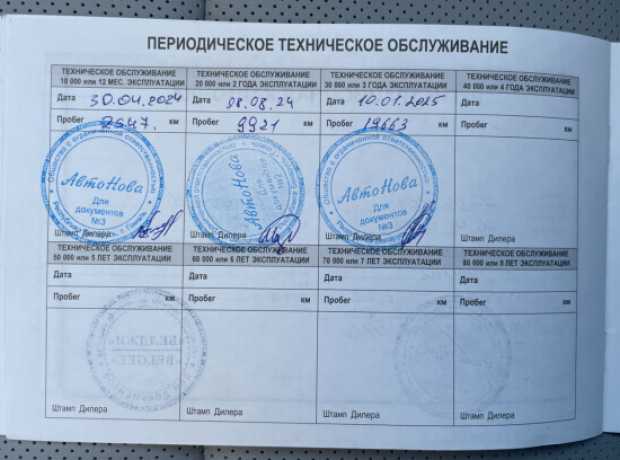 ПЕРИОДИЧЕСКОЕ ТЕХНИЧЕСКОЕ ОБСЛУЖИВАНИЕ
ТЕХНИЧЕСКОЕ ОБСЛУЖИВАНИЕ
10 000 или 12 МЕС. ЭКСПЛУАТАЦИИ
Дата 30.04.2024
Пробег км
АвтоНова
Для
документов
№3
Штамп Дилера
ТЕХНИЧЕСКОЕ ОБСЛУЖИВАНИЕ
20 000 или 2 ГОДА ЭКСПЛУАТАЦИИ
Дата 08.08.24
Пробег 9921 км
АвтоНова
Для
документов
Штамп Дилера
ТЕХНИЧЕСКОЕ ОБСЛУЖИВАНИЕ
30 000 или 3 ГОДА ЭКСПЛУАТАЦИИ
Дата 10.01.2025
Пробег 19663 км
Общество с ограниченной ответственностью
АвтоНова
Для
документов
№3
Штамп Дилера
ТЕХНИЧЕСКОЕ ОБСЛУЖИВАНИЕ
40 000 или 4 ГОДА ЭКСПЛУАТАЦИИ
Дата
Пробег км
Штамп Дилера
ТЕХНИЧЕСКОЕ ОБСЛУЖИВАНИЕ
50 000 или 5 ЛЕТ ЭКСПЛУАТАЦИИ
Дата
Пробег км
Штамп Дилера
ТЕХНИЧЕСКОЕ ОБСЛУЖИВАНИЕ
60 000 или 6 ЛЕТ ЭКСПЛУАТАЦИИ
Дата
Пробег км
Штамп Дилера
ТЕХНИЧЕСКОЕ ОБСЛУЖИВАНИЕ
70 000 или 7 ЛЕТ ЭКСПЛУАТАЦИИ
Дата
Пробег км
Штамп Дилера
ТЕХНИЧЕСКОЕ ОБСЛУЖИВАНИЕ
80 000 или 8 ЛЕТ ЭКСПЛУАТАЦИИ
Дата
Пробег км
Штамп Дилера